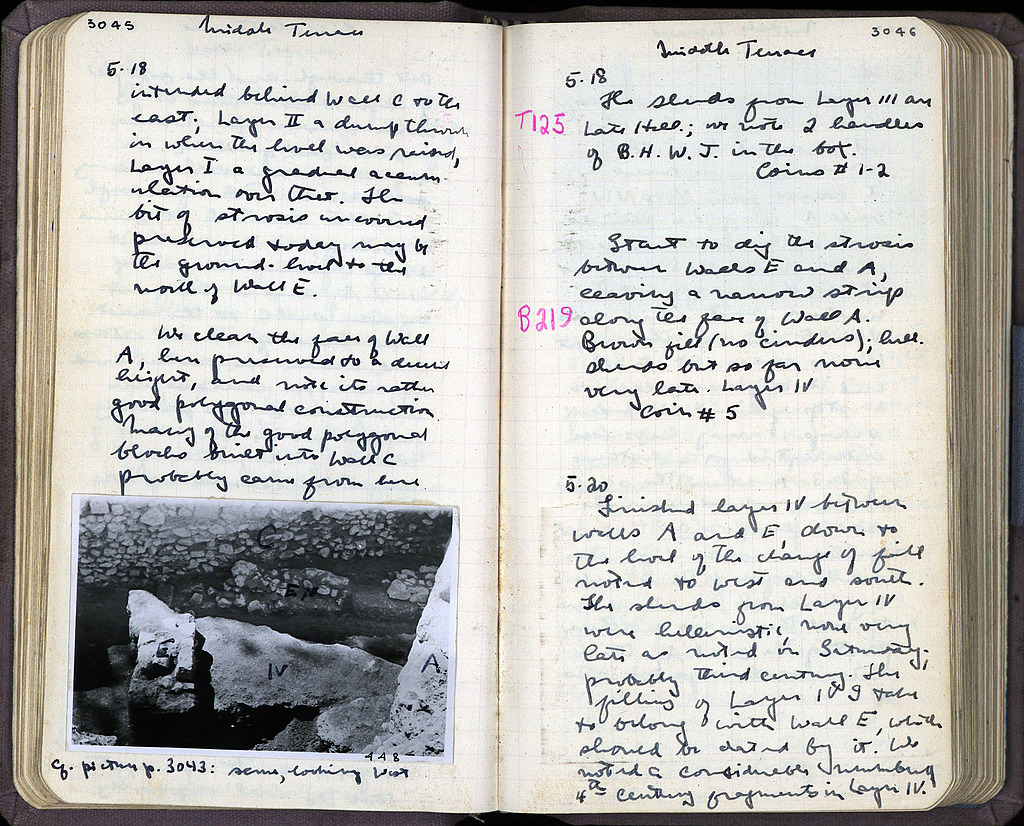 3045
Middle Terrace
5.18
intended behind Wall C to the
east; Layer II a dump thrown
in when the level was raised,
Layer I a gradual accum-
ulation over that. The
bit of strosis uncovered
preserved today may be
the ground-level to the
north of Wall E.
We clean the face of Wall
A, here preserved to a decent
height, and note its rather
good polygonal construction
Many of the good polygonal
blocks built into Wall C
probably came from here.
C
E
IV
A
448
Cf. picture p. 3043: same, looking West
3046
Middle Terrace
5.18
The sherds from Layer III are
T125
Late Hell.; we note 2 handles
of B.H.W.J. in the box.
Coins # 1-2
Start to dig the strosis
between Walls E and A,
leaving a narrow strip
B219
along the face of Wall A.
Brown fill (no cinders); hell.
sherds but so far none
very late. Layer IV
Coin # 5
5.20
Finished layer IV between
walls A and E, down to
the level of the change of fill
noted to west and south.
The sherds from Layer IV
were hellenistic, none very
late as noted on Saturday;
probably third century. The
filling of Layer IV I take
to belong with Wall E, which
should be dated by it. We
noted a considerable number of
4th century fragments in Layer IV.